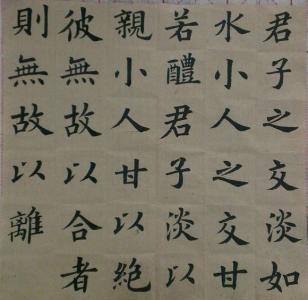 君子之交淡如
水小人之交甘
若醴君子淡以
親小人甘以絕
彼無故以合者
則無故以離